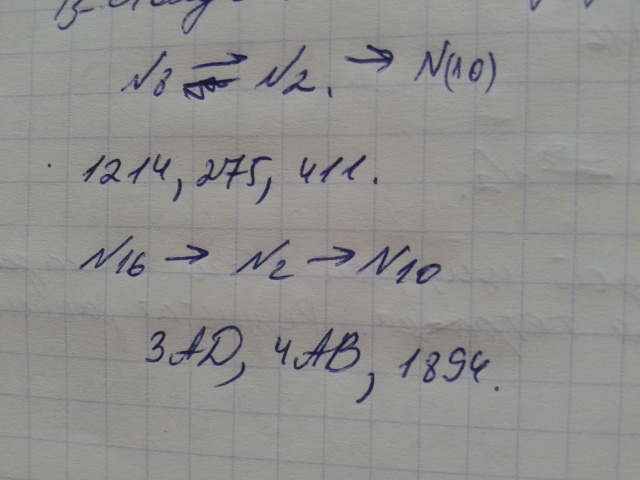 N8 ⇌ N2. → N(10)
1214, 275, 411.
N16 → N2 → N10
3AD, 4AB, 1894.